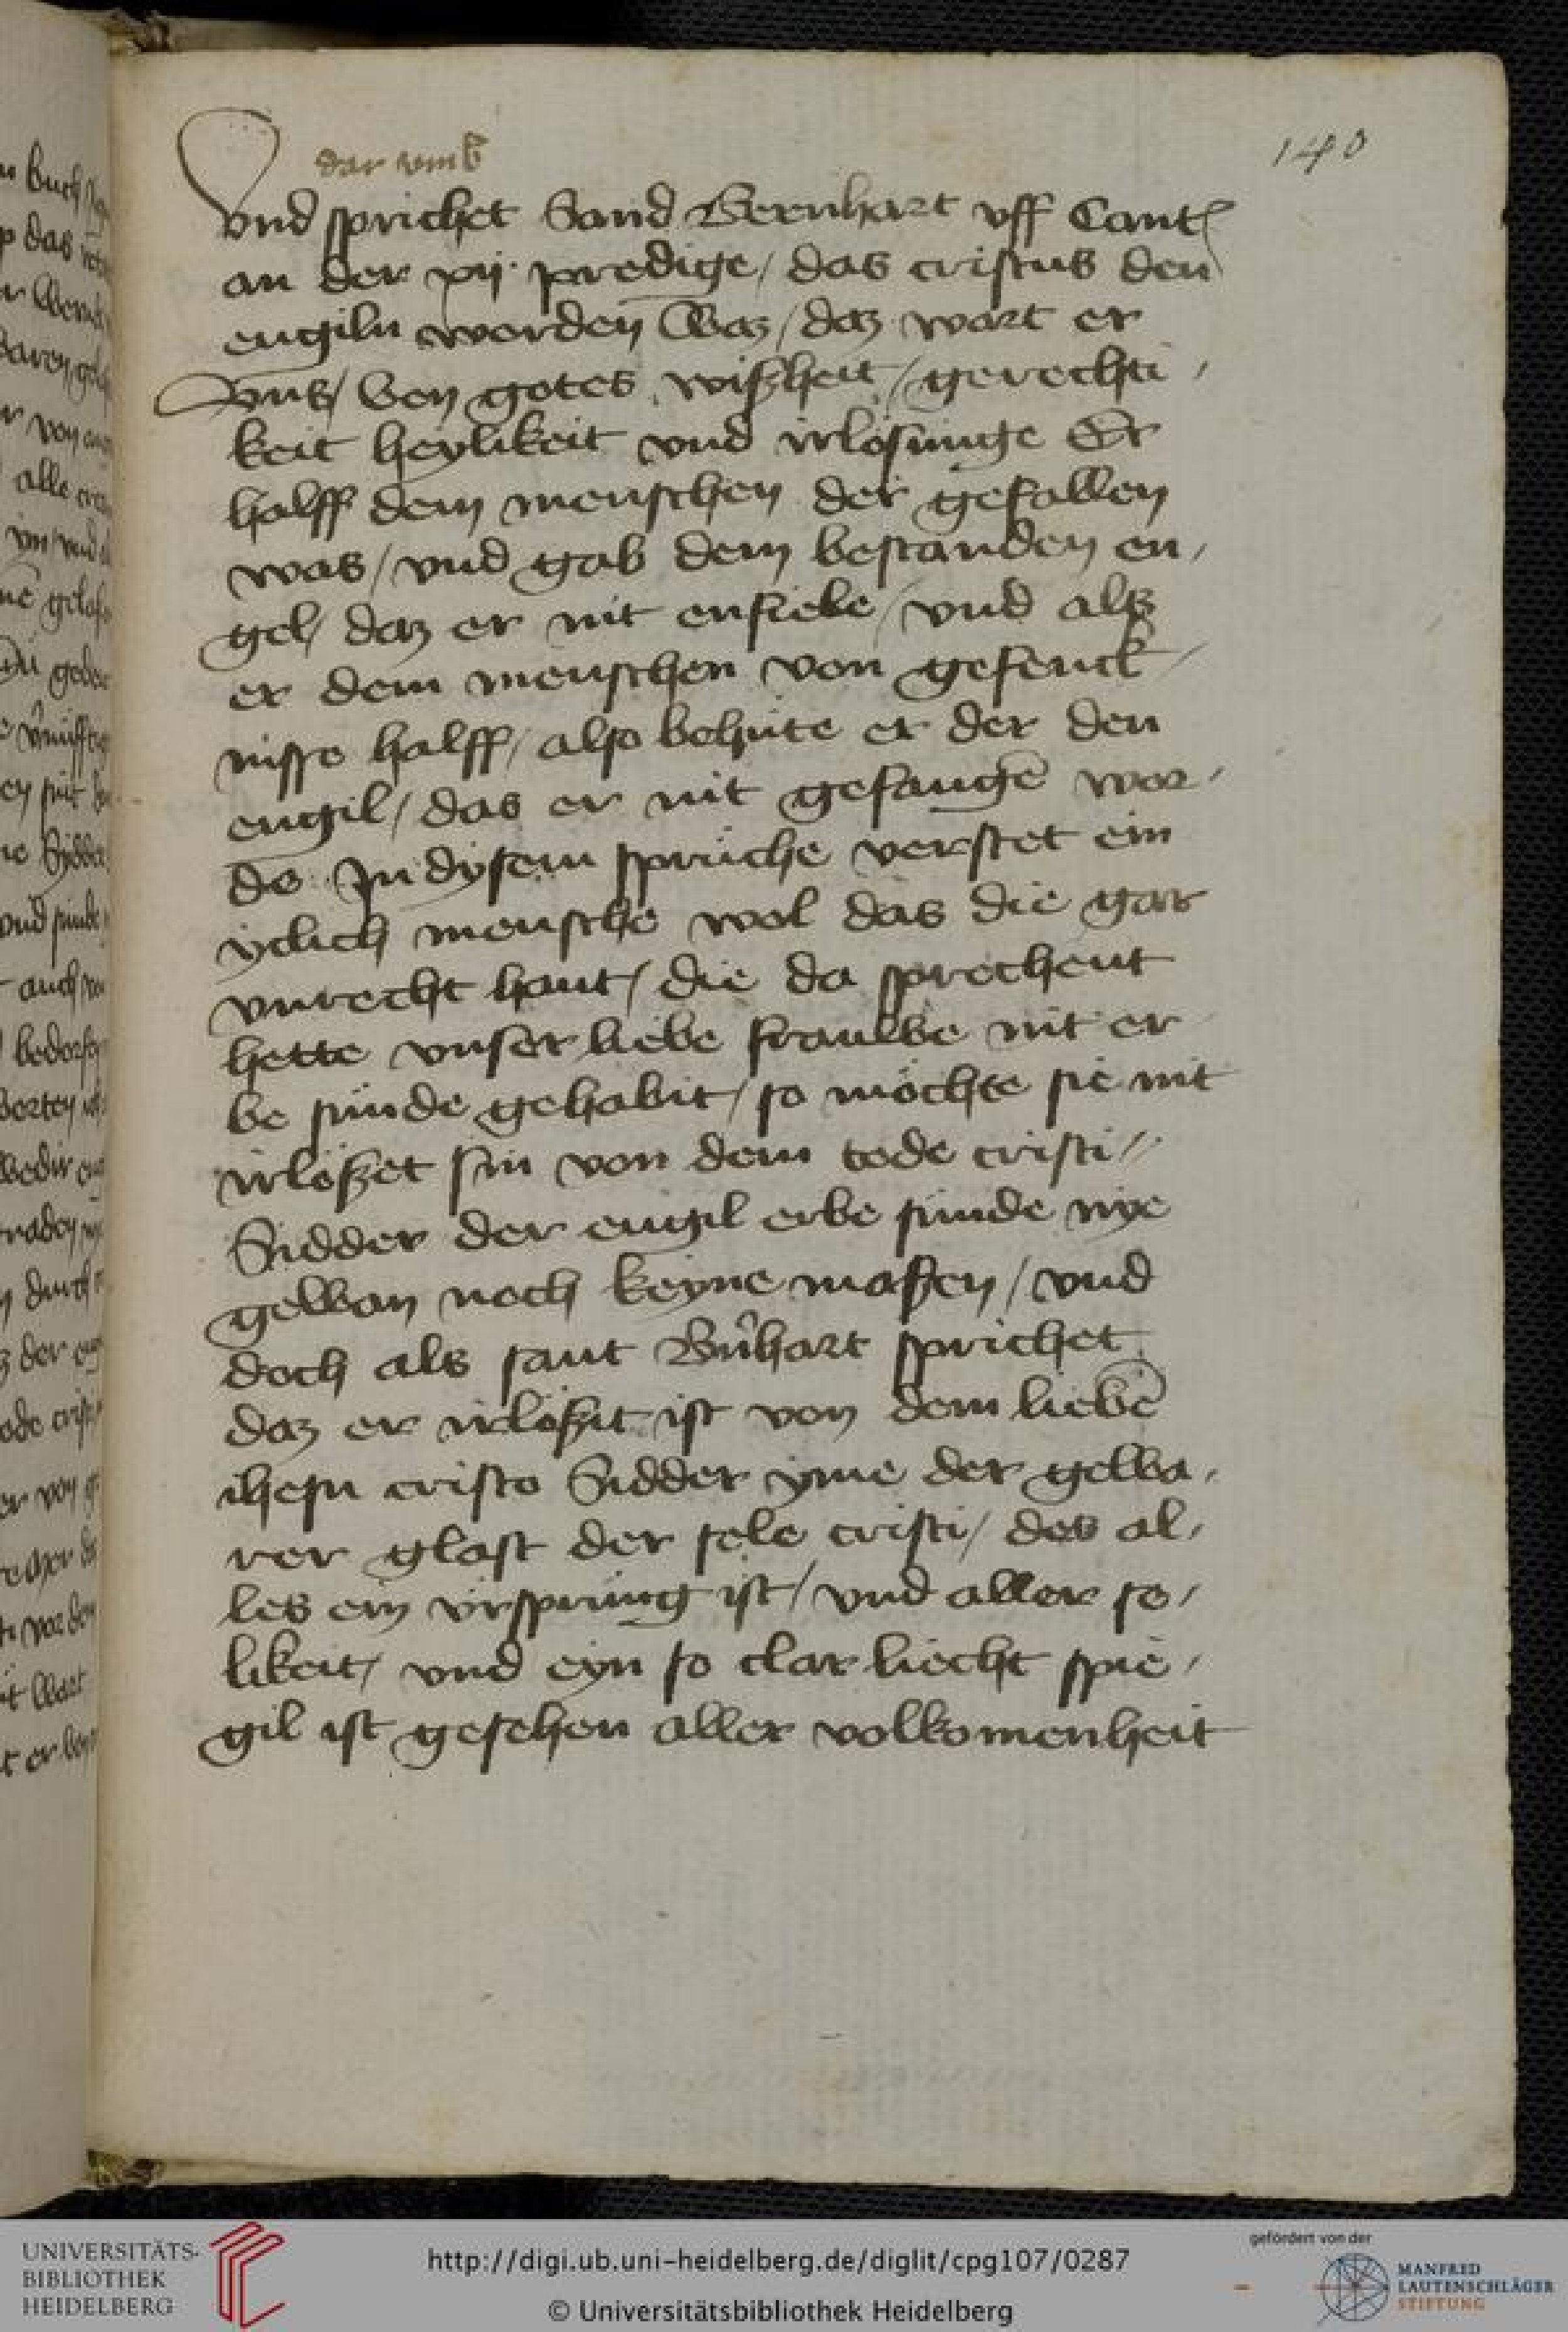 140
dar vmb
vnd sprichet Sand Bernhart vff Cant
an der xij. predige / das cristus den
engiln worden Waz / daz wart er
vns / Von gotes wißheit / gerechti /
keit heylikeit vnd irlosunge Er
halff dem menschen der gefallen
was / vnd gab dem bestanden en /
gel / daz er nit enfiele / vnd alß
er dem menschen von gefenck /
nisse halff / also behute er der den
engil / das er nit gefangē wor /
de In dysem spruche verstet ein
yclich mensche wol das die gar
vnrecht hant / die da sprechent
hette vnser liebe frauwe nit er
be sunde gehabit / so mochte sie nit
irloßet sin von dem tode cristi //
Sidder der engil erbe sunde nye
gewan noch keyne maßen / vnd
doch als sant Bn̄hart sprichet
daz er irloßit ist von dem liebē
ihesu cristo Sidder yme der gewa /
rer glast der sele cristi / des al /
les ein vrsprung ist / vnd aller se /
likeit / vnd eyn so clar liecht spie /
gil ist gesehen aller volkomenheit
UNIVERSITÄTS-
BIBLIOTHEK
HEIDELBERG
http://digi.ub.uni-heidelberg.de/diglit/cpg107/0287
© Universitätsbibliothek Heidelberg
gefördert von der
MANFRED
LAUTENSCHLÄGER
STIFTUNG